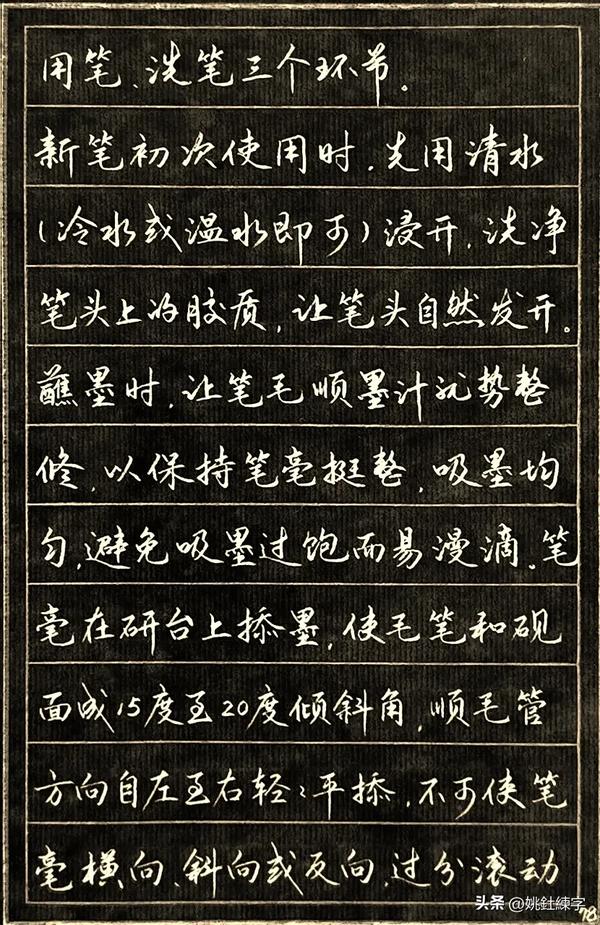 用笔、洗笔三个环节。
新笔初次使用时,先用清水
(冷水或温水即可)浸开,洗净
笔头上的胶质,让笔头自然发开。
蘸墨时,让笔毛顺墨汁就势整
修,以保持笔毫挺整,吸墨均
匀,避免吸墨过饱而易漫滴。笔
毫在研台上掭墨,使毛笔和砚
面成15度至20度倾斜角,顺毛管
方向自左至右轻々平掭,不可使笔
毫横向、斜向或反向,过分滚动
头条 @姚釷練字
78